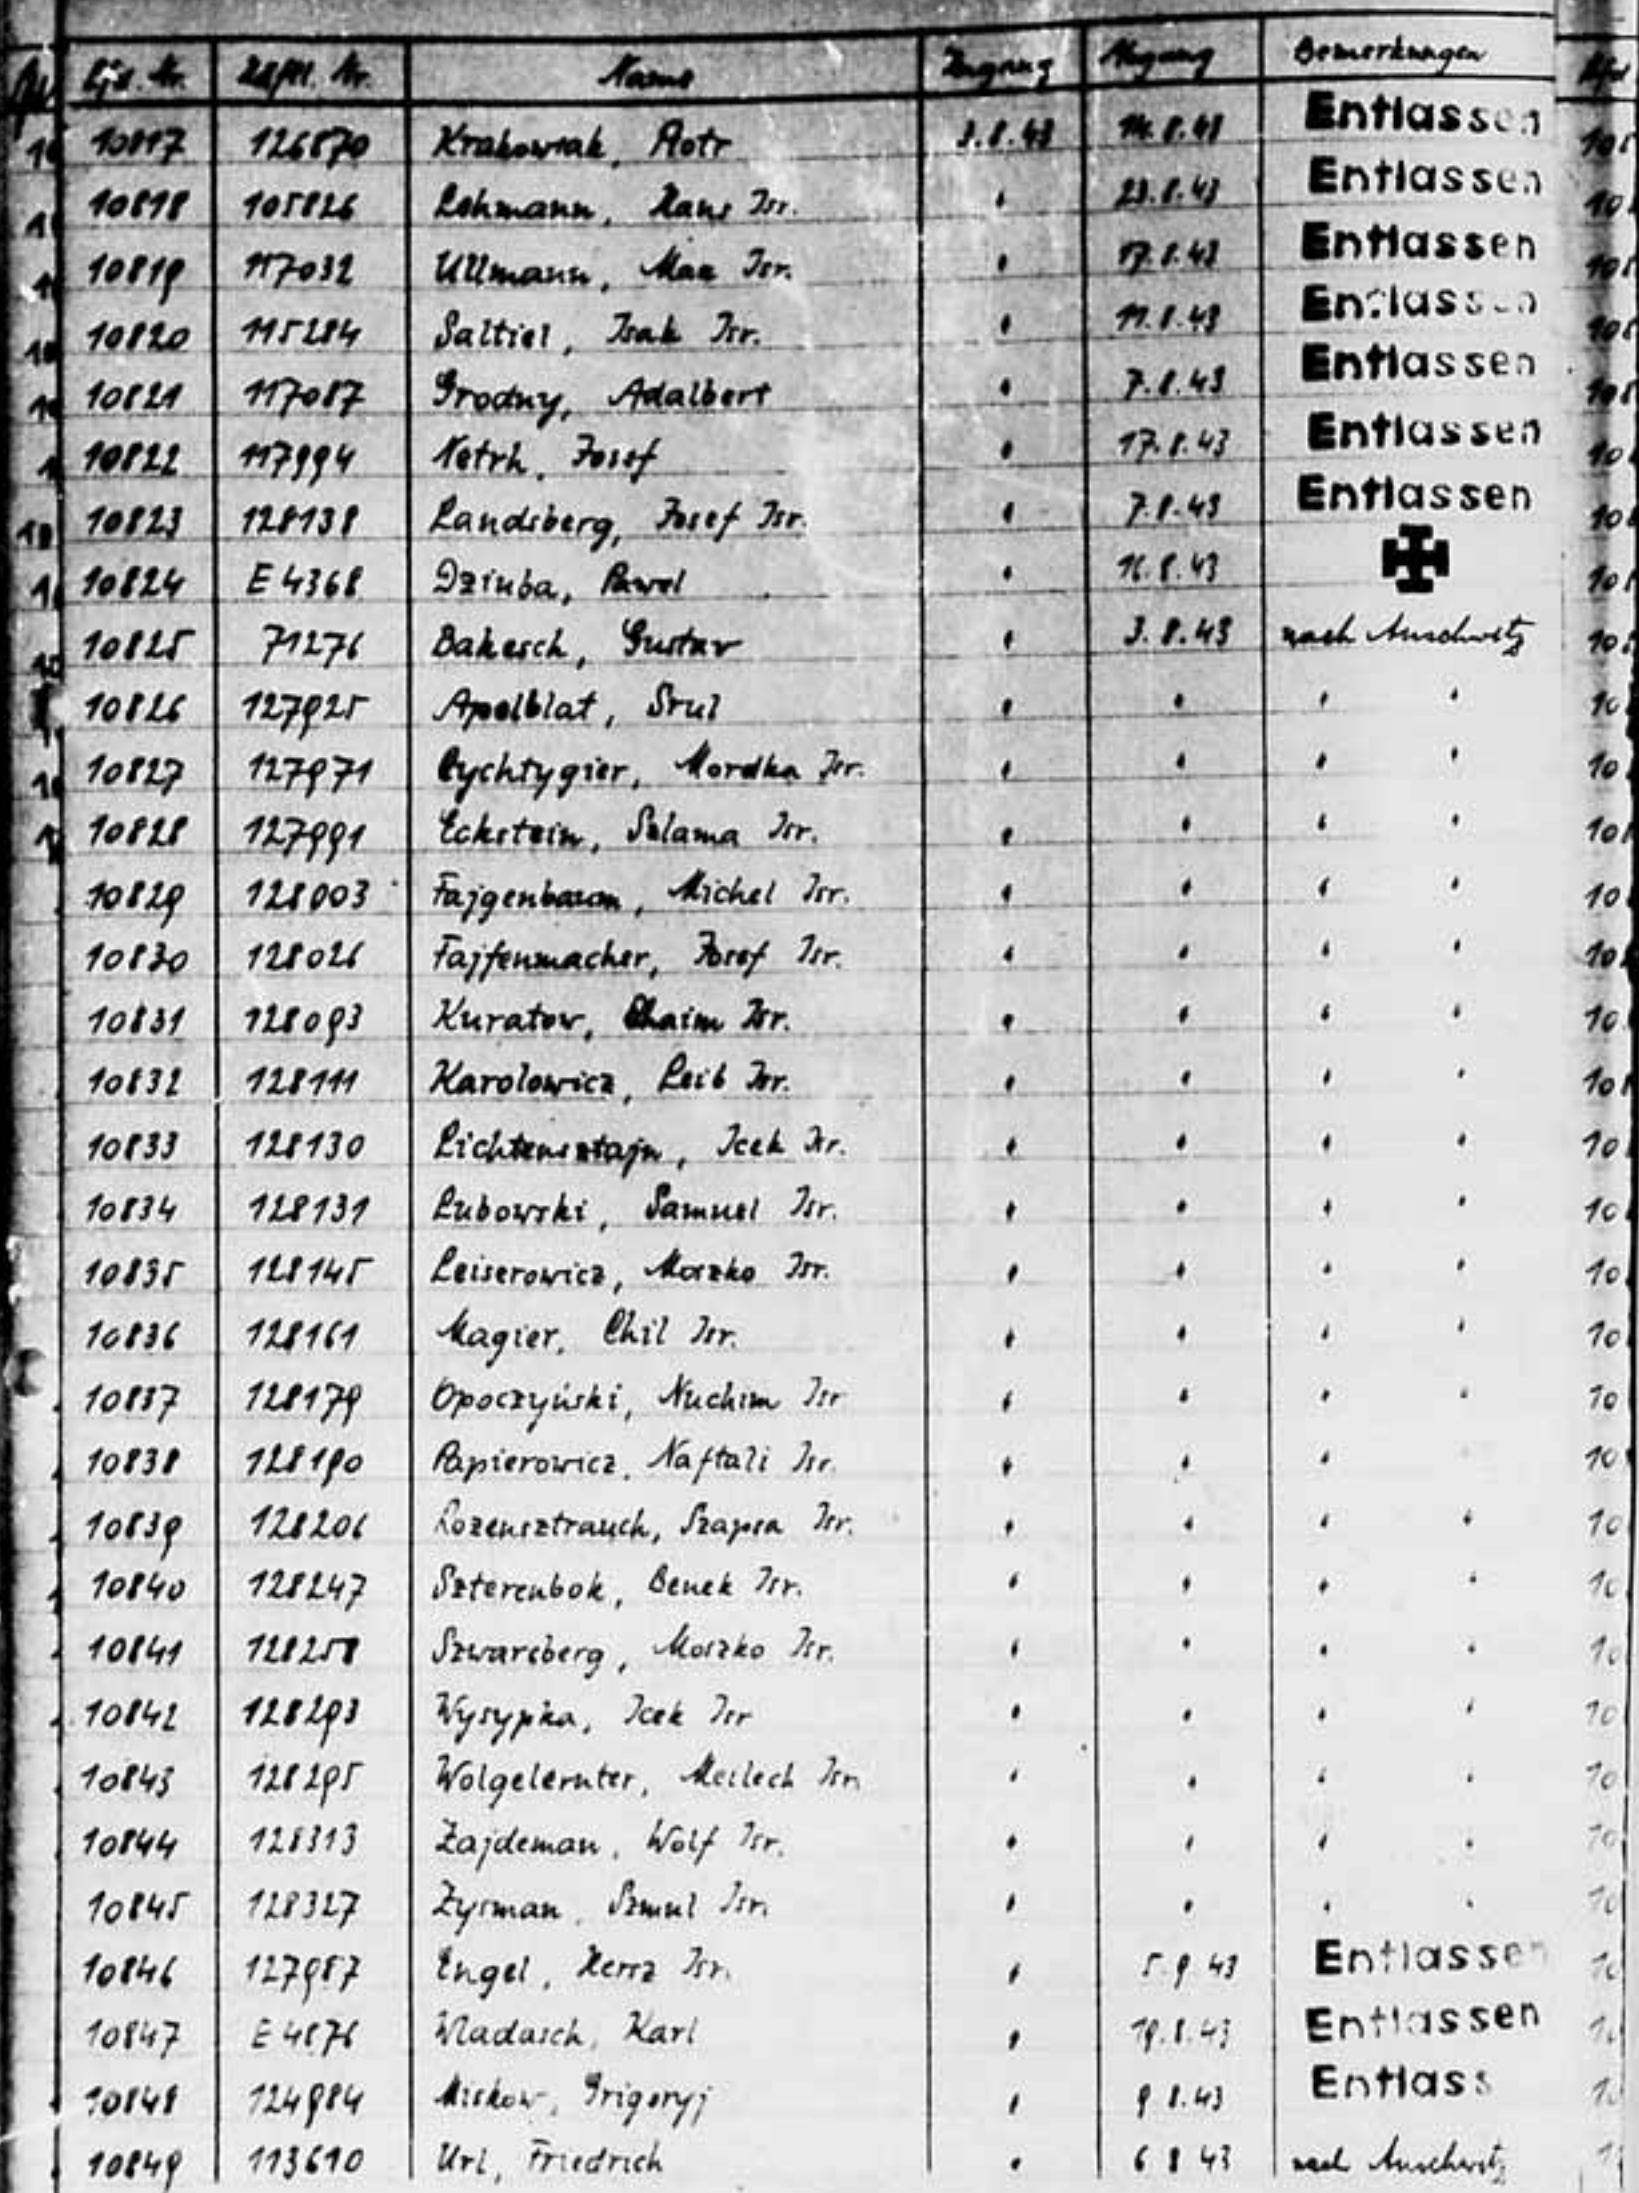 Lfd. Nr. Häftl. Nr. Name Zugang Abgang Bemerkungen
10817 126870 Krakowiak, Piotr 3.8.43 14.8.43 Entlassen
10818 105826 Lehmann, Hans Isr. " 23.8.43 Entlassen
10819 117032 Ullmann, Max Isr. " 17.8.43 Entlassen
10820 115284 Saltiel, Isak Isr. " 11.8.43 Entlassen
10821 117087 Grodny, Adalbert " 7.8.43 Entlassen
10822 117994 Netrh, Josef " 17.8.43 Entlassen
10823 128138 Landsberg, Josef Isr. " 7.8.43 Entlassen
10824 E 4368 Dziuba, Pawel " 16.8.43
10825 71276 Bakesch, Gustav " 3.8.43 nach Auschwitz
10826 127925 Apelblat, Srul " " " "
10827 127971 Cychtygier, Mordka Isr. " " " "
10828 127991 Eckstein, Salama Isr. " " " "
10829 128003 Fajgenbaum, Michel Isr. " " " "
10830 128026 Fajfenmacher, Josef Isr. " " " "
10831 128093 Kuratow, Chaim Isr. " " " "
10832 128111 Karolowicz, Leib Isr. " " " "
10833 128130 Lichtensztajn, Icek Isr. " " " "
10834 128131 Lubowski, Samuel Isr. " " " "
10835 128145 Leiserowicz, Moszko Isr. " " " "
10836 128161 Magier, Chil Isr. " " " "
10837 128179 Opoczyński, Nuchim Isr " " " "
10838 128190 Papierowicz, Naftali Isr. " " " "
10839 128206 Rozensztrauch, Szapsa Isr. " " " "
10840 128247 Szterenbok, Benek Isr. " " " "
10841 128258 Szwarcberg, Moszko Isr. " " " "
10842 128293 Wysypka, Icek Isr " " " "
10843 128295 Wolgelernter, Meilech Isr. " " " "
10844 128313 Zajdeman, Wolf Isr. " " " "
10845 128327 Zysman, Szmul Isr. " " " "
10846 127987 Engel, Hersz Isr. " 5.9.43 Entlassen
10847 E 4876 Wladasch, Karl " 19.8.43 Entlassen
10848 124984 Miskow, Grigoryj " 9.8.43 Entlass
10849 113610 Url, Friedrich " 6 8 43 nach Auschwitz